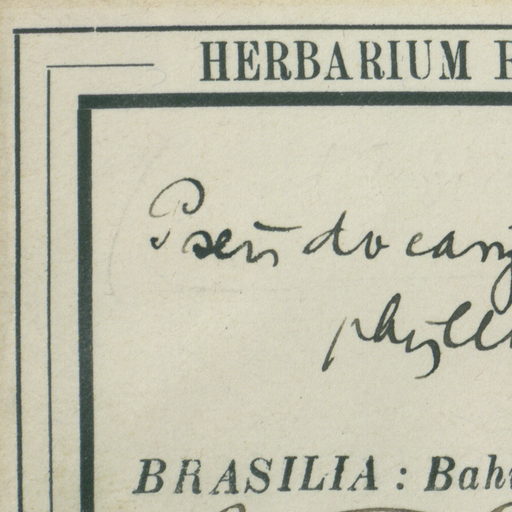 HERBARIUM
Pseudocary
phyll
BRASILIA : Bah